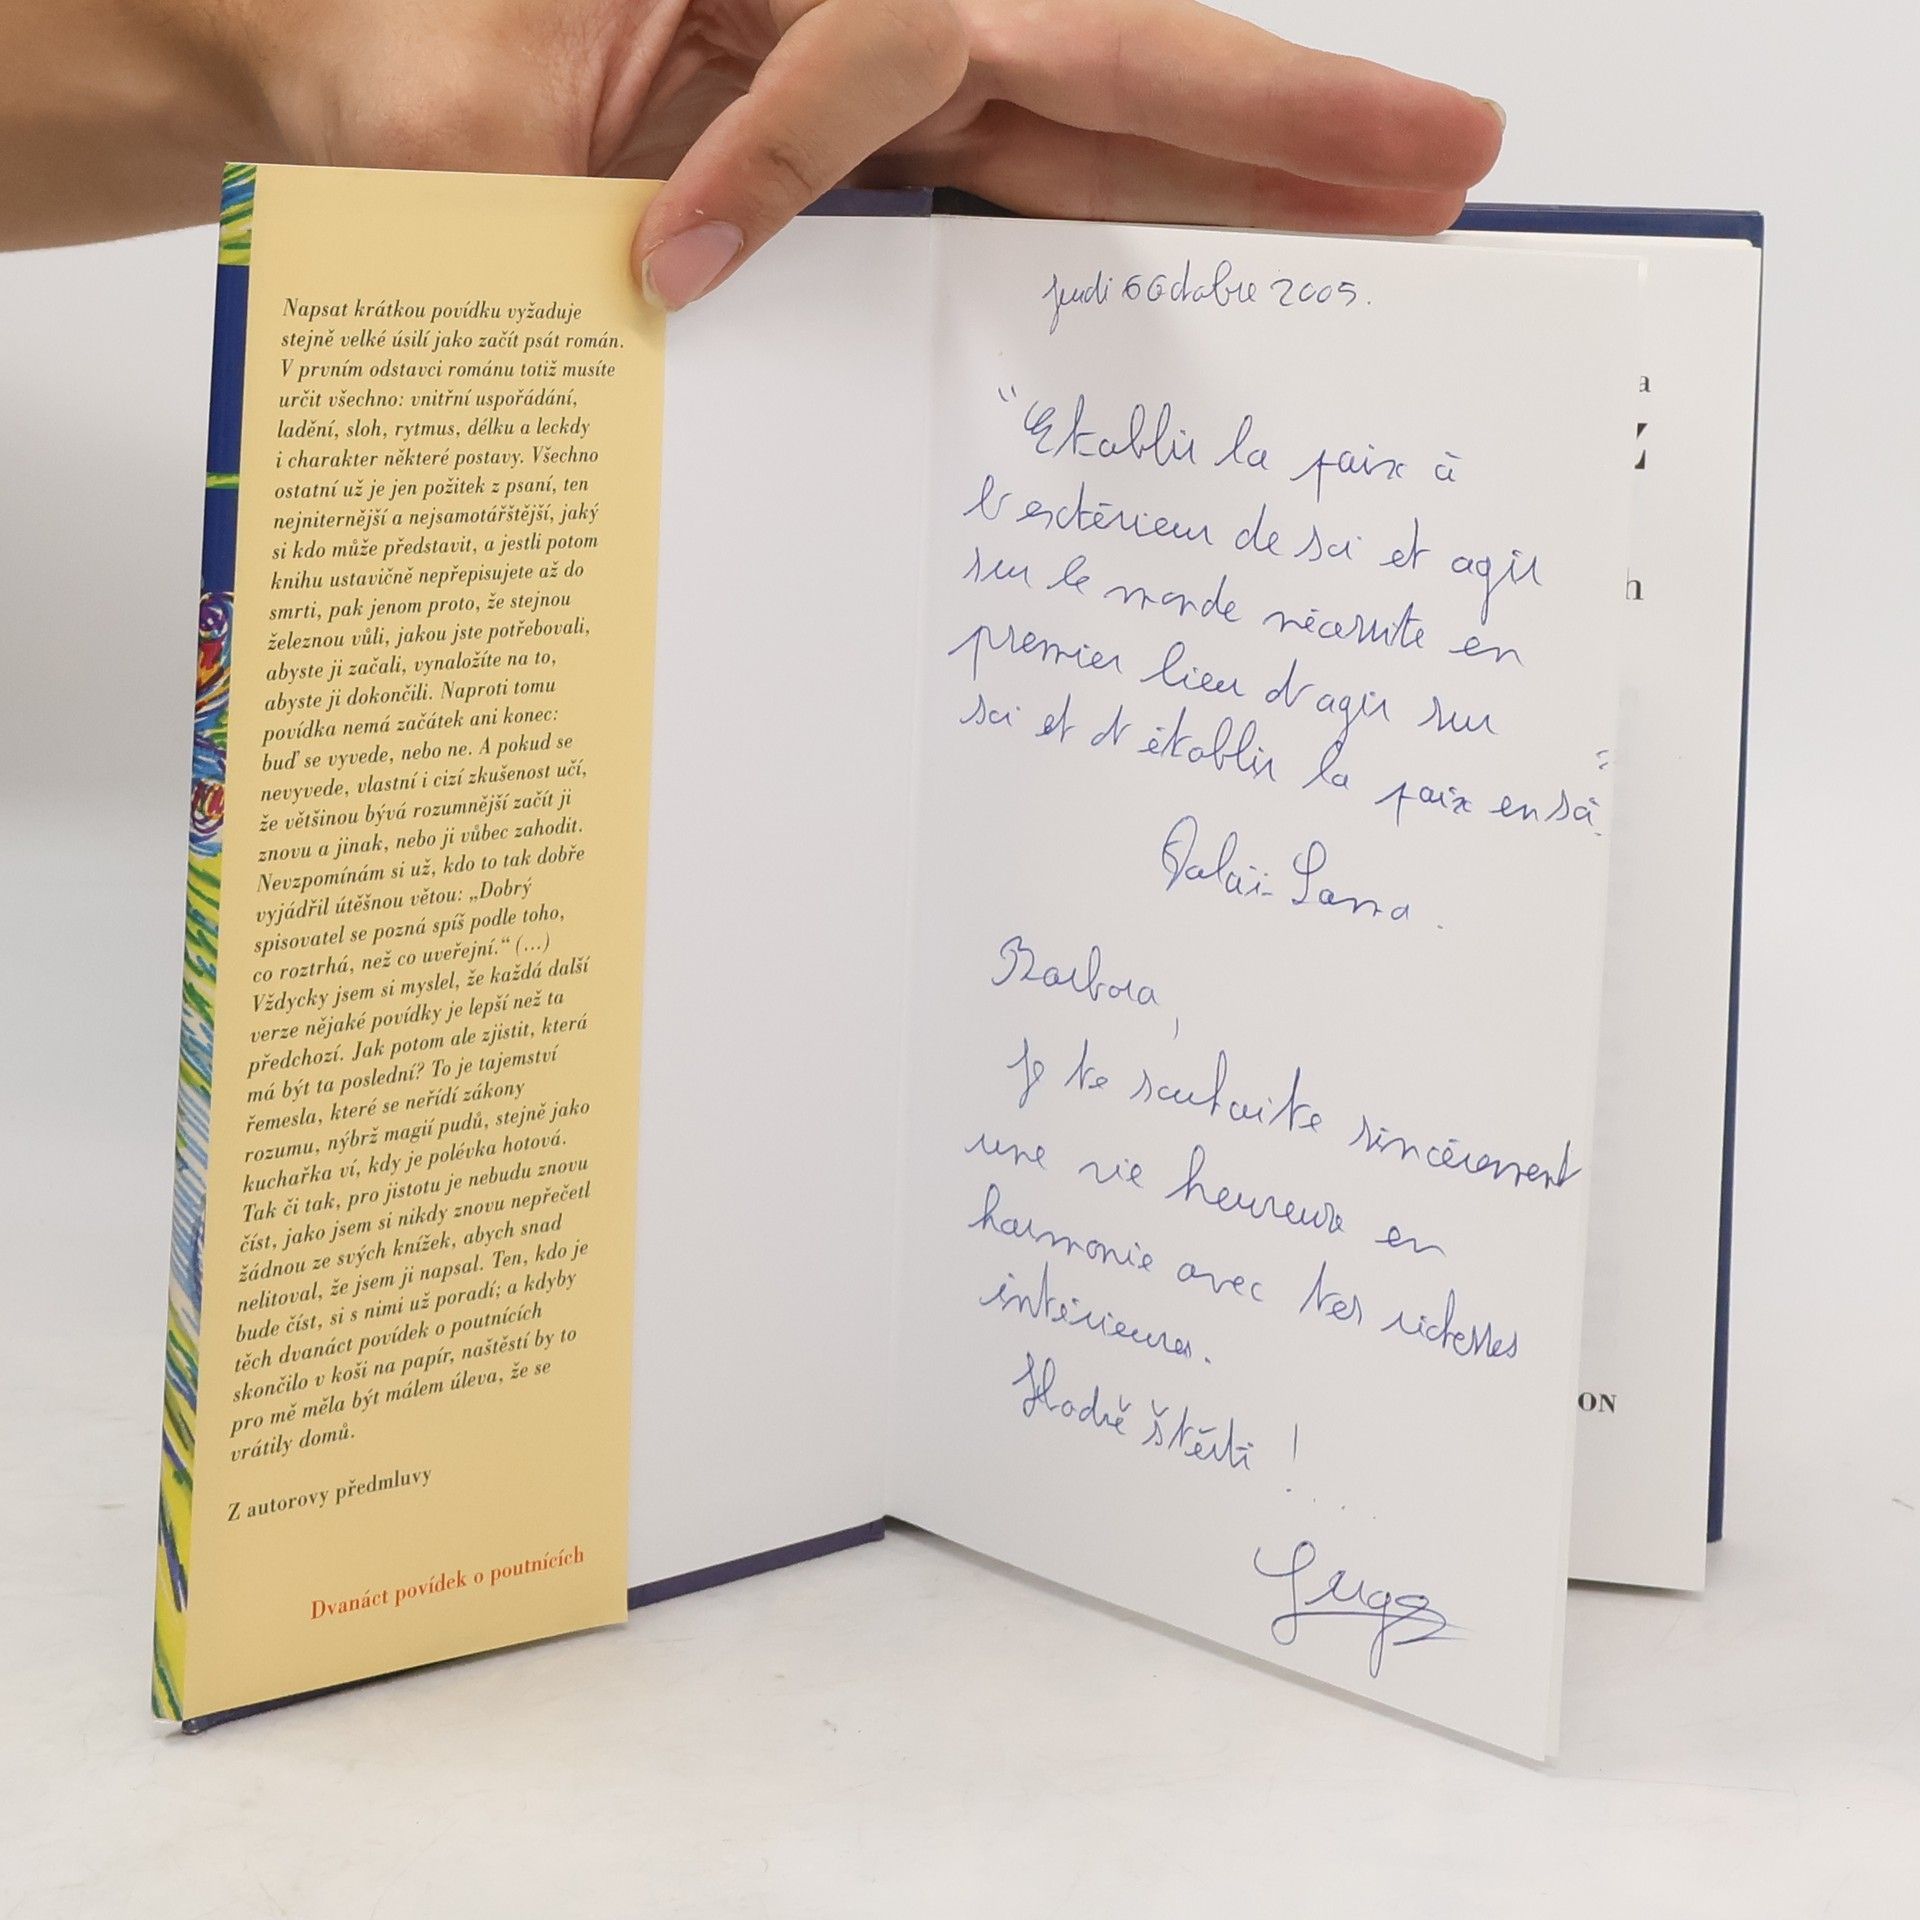 Napsat krátkou povídku vyžaduje
stejně velké úsilí jako začít psát román.
V prvním odstavci románu totiž musíte
určit všechno: vnitřní uspořádání,
ladění, sloh, rytmus, délku a leckdy
i charakter některé postavy. Všechno
ostatní už je jen požitek z psaní, ten
nejniternější a nejsamotářštější, jaký
si kdo může představit, a jestli potom
knihu ustavičně nepřepisujete až do
smrti, pak jenom proto, že stejnou
železnou vůli, jakou jste potřebovali,
abyste ji začali, vynaložíte na to,
abyste ji dokončili. Naproti tomu
povídka nemá začátek ani konec:
buď se vyvede, nebo ne. A pokud se
nevyvede, vlastní i cizí zkušenost učí,
že většinou bývá rozumnější začít ji
znovu a jinak, nebo ji vůbec zahodit.
Nevzpomínám si už, kdo to tak dobře
vyjádřil útěšnou větou: „Dobrý
spisovatel se pozná spíš podle toho,
co roztrhá, než co uveřejní.“ (...)
Vždycky jsem si myslel, že každá další
verze nějaké povídky je lepší než ta
předchozí. Jak potom ale zjistit, která
má být ta poslední? To je tajemství
řemesla, které se neřídí zákony
rozumu, nýbrž magií pudů, stejně jako
kuchařka ví, kdy je polévka hotová.
Tak či tak, pro jistotu je nebudu znovu
číst, jako jsem si nikdy znovu nepřečetl
žádnou ze svých knížek, abych snad
nelitoval, že jsem ji napsal. Ten, kdo je
bude číst, si s nimi už poradí; a kdyby
těch dvanáct povídek o poutnících
skončilo v koši na papír, naštěstí by to
pro mě měla být málem úleva, že se
vrátily domů.
Z autorovy předmluvy
Dvanáct povídek o poutnících
jeudi 6 Octobre 2005.
"Etablir la paix à
l'extérieur de soi et agir
sur le monde nécessite en
premier lieu d'agir sur
soi et d'établir la paix en soi."
Dalaï-Lama.
Barbora,
je te souhaite sincèrement
une vie heureuse en
harmonie avec tes richesses
intérieures.
Hodně štěstí !
Hugo
a
Z
h
ON